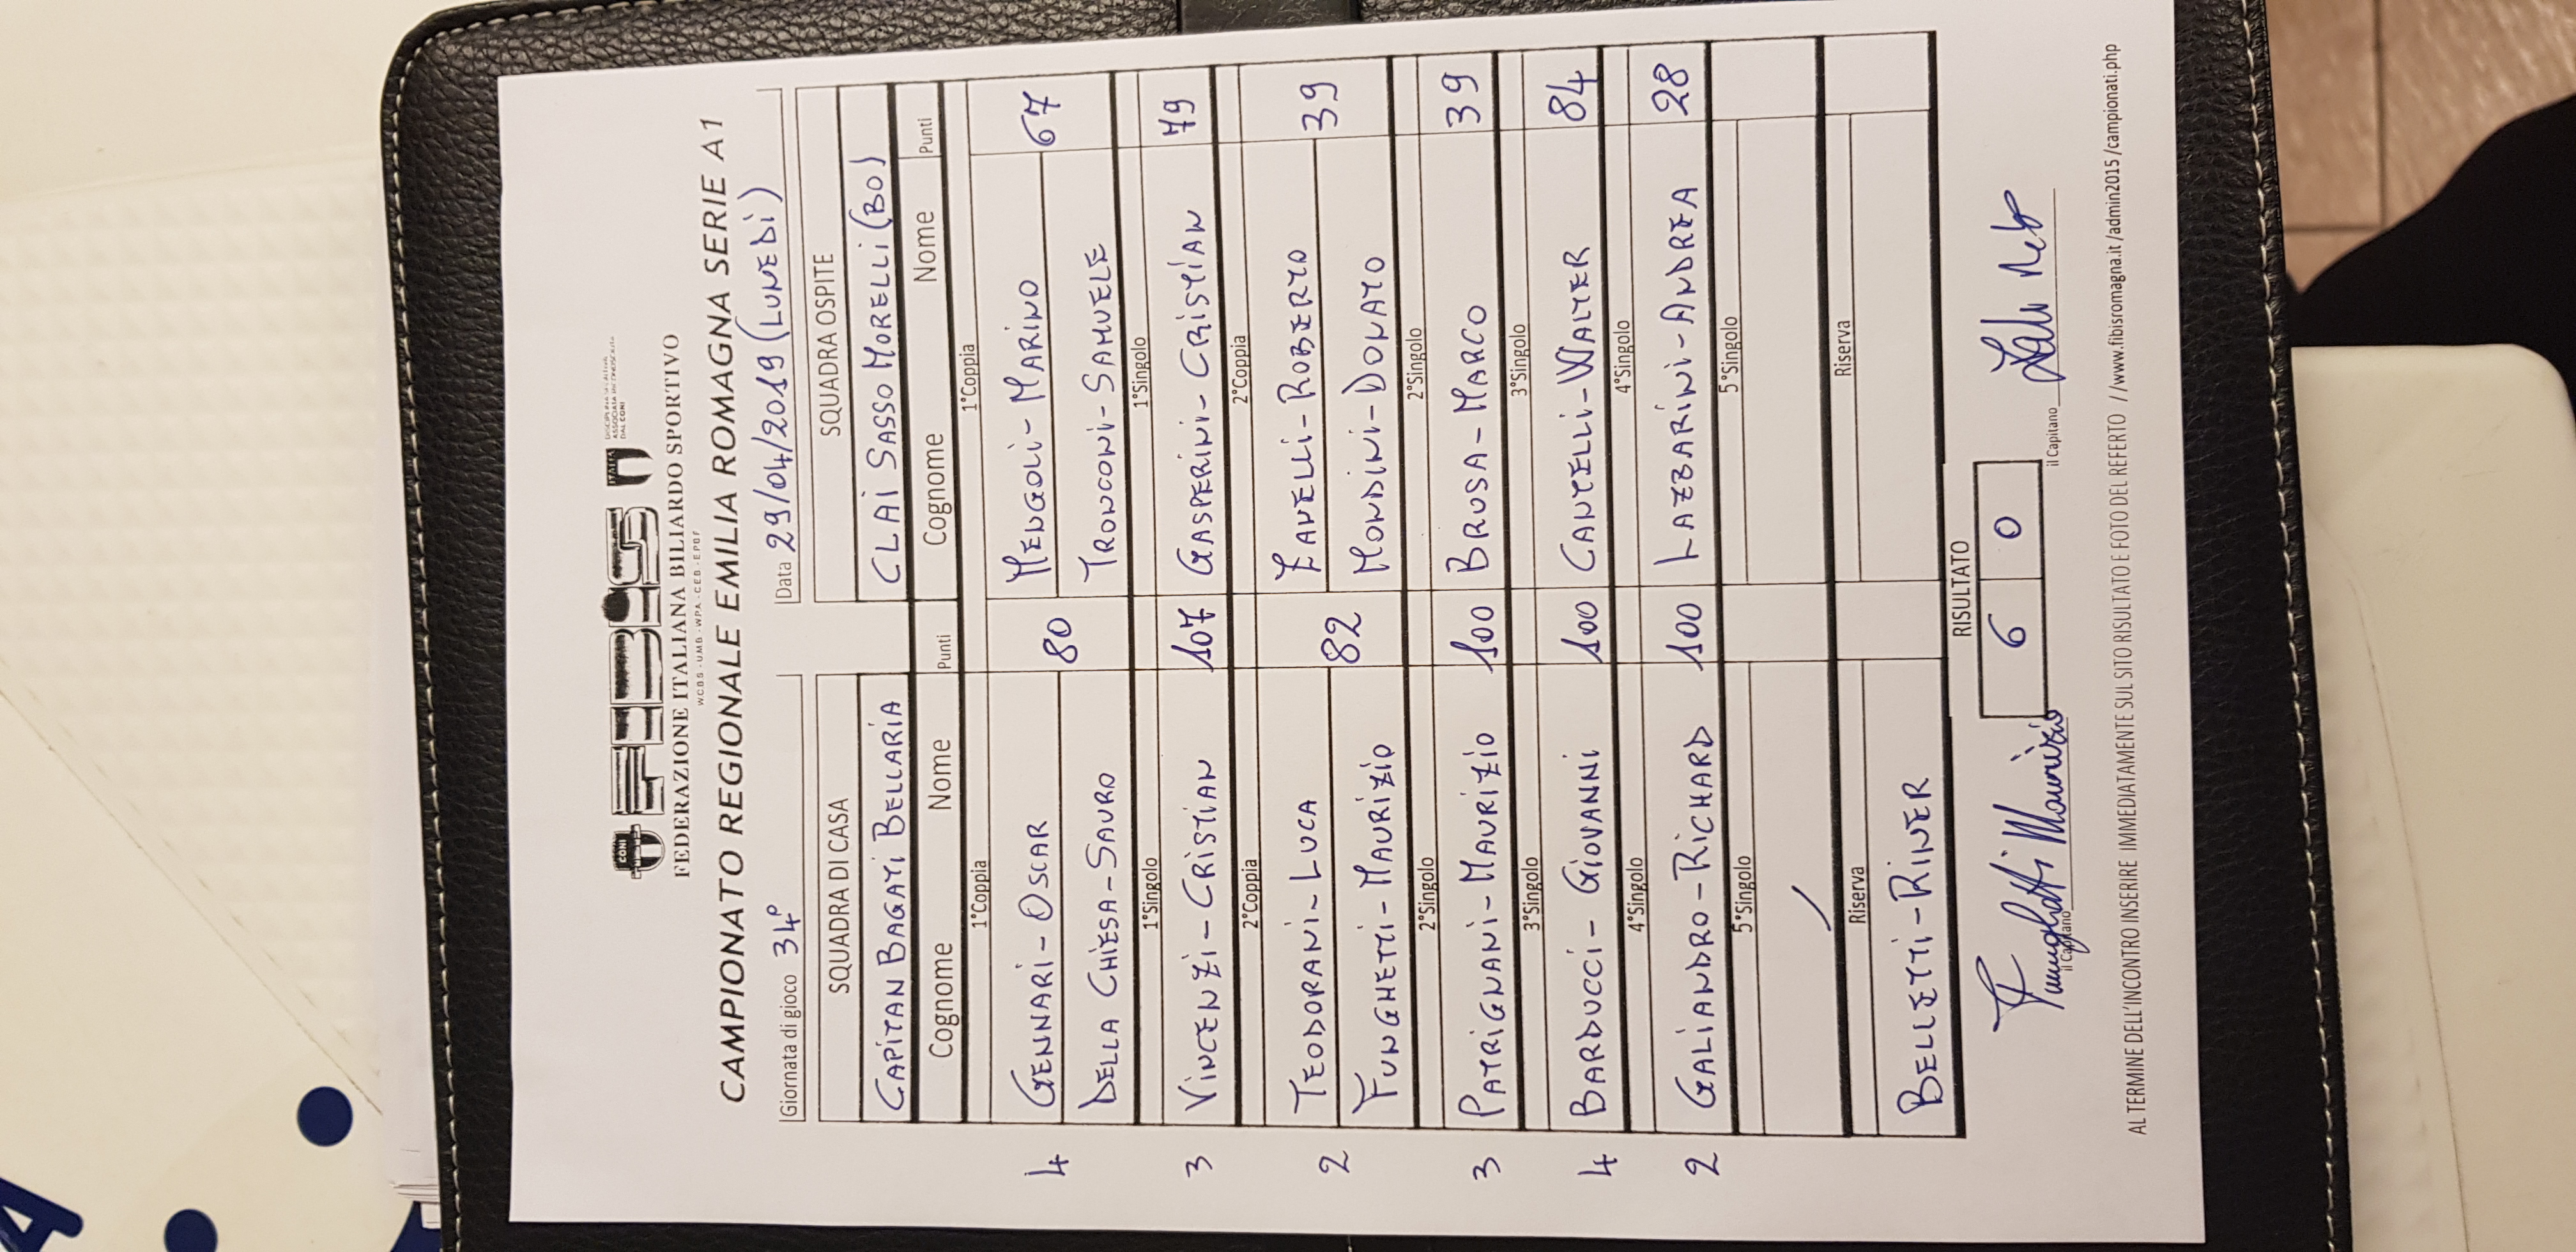 CONI
FIBiS
ITALIA
DISCIPLINA SPORTIVA
ASSOCIATA RICONOSCIUTA
DAL CONI
FEDERAZIONE ITALIANA BILIARDO SPORTIVO
WCBS - UMB - WPA - CEB - EPBF
CAMPIONATO REGIONALE EMILIA ROMAGNA SERIE A1
Giornata di gioco 34° Data 29/04/2019 (LUNEDì)
SQUADRA DI CASA SQUADRA OSPITE
CAPITAN BAGATI BELLARIA CLAI SASSO MORELLI (BO)
Cognome Nome Punti Cognome Nome Punti
1°Coppia 1°Coppia
4 GENNARI - OSCAR 80 MENGOLI - MARINO 67
DELLA CHIESA - SAURO TRONCONI - SAMUELE
1°Singolo 1°Singolo
3 VINCENZI - CRISTIAN 107 GASPERINI - CRISTIAN 79
2°Coppia 2°Coppia
2 TEODORANI - LUCA 82 ZANELLI - ROBERTO 39
FUNGHETTI - MAURIZIO MONDINI - DONATO
2°Singolo 2°Singolo
3 PATRIGNANI - MAURIZIO 100 BRUSA - MARCO 39
3°Singolo 3°Singolo
4 BARDUCCI - GIOVANNI 100 CANTELLI - WALTER 84
4°Singolo 4°Singolo
2 GALIANDRO - RICHARD 100 LAZZARINI - ANDREA 28
5°Singolo 5°Singolo
Riserva Riserva
BELLETTI - RINER
RISULTATO
6 0
il Capitano Funghetti Maurizio il Capitano
AL TERMINE DELL'INCONTRO INSERIRE IMMEDIATAMENTE SUL SITO RISULTATO E FOTO DEL REFERTO / www.fibisromagna.it /admin2015 /campionati.php